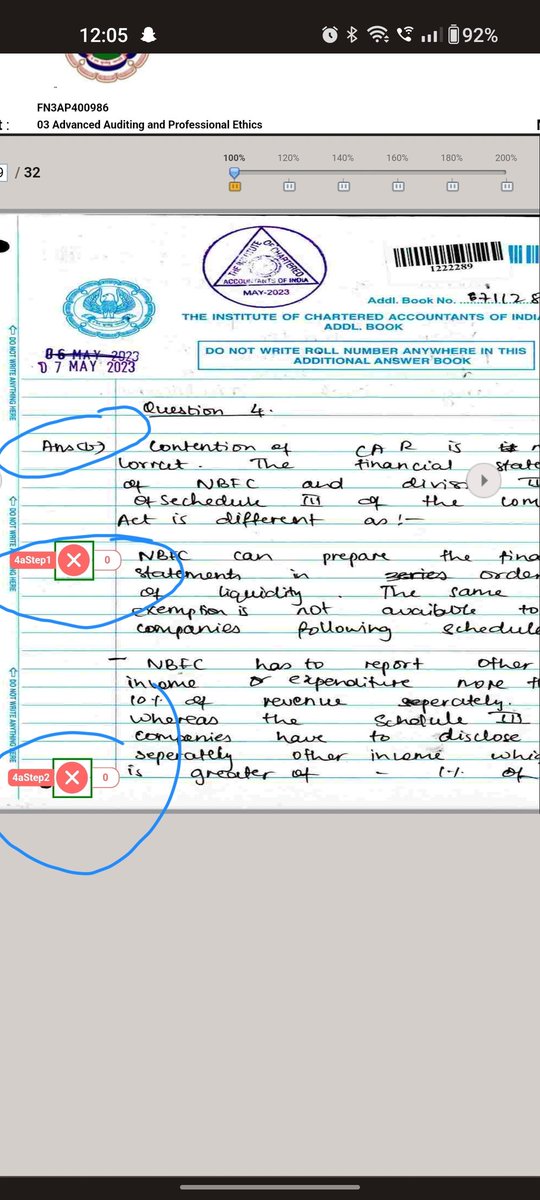 12:05
92%
FN3AP400986
t :
03 Advanced Auditing and Professional Ethics
9 / 32
100% 120% 140% 160% 180% 200%
THE INSTITUTE OF CHARTERED ACCOUNTANTS OF INDIA
MAY-2023
1222289
Addl. Book No.
THE INSTITUTE OF CHARTERED ACCOUNTANTS OF INDI
ADDL. BOOK
06 MAY 2023
07 MAY 2023
DO NOT WRITE ROLL NUMBER ANYWHERE IN THIS
ADDITIONAL ANSWER BOOK
DO NOT WRITE ANYTHING HERE
Question 4.
Ans(b) Contention of CA R is
correct. The financial state
of NBFC and divisi
of Sechedule III of the com
Act is different as :-
4aStep1 0
NBFC can prepare the fina
statements in series order
of liquidity. The same
exemption is not available to
companies following schedule
- NBFC has to report other
income or expenditure more t
10% of revenue seperately.
Whereas the Schedule III
companies have to disclose
seperately other income whic
4aStep2 0
is greater of - 1% of